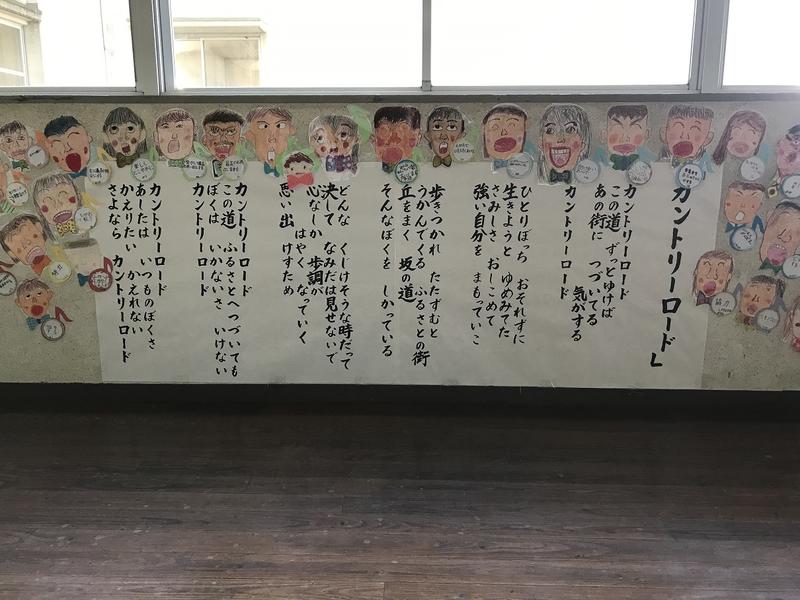 カントリーロード」
カントリーロード
この道 ずっとゆけば
あの街に つづいてる
気がする
カントリーロード
ひとりぼっち おそれずに
生きようと ゆめみてた
さみしさ おしこめて
強い自分を まもっていこ
歩きつかれ たたずむと
うかんでくる ふるさとの街
丘をまく 坂の道
そんなぼくを しかっている
どんな くじけそうな時だって
決して なみだは見せないで
心なしか 歩調が
はやく なっていく
思い出 けすため
カントリーロード
この道 ふるさとへつづいても
ぼくは いかないさ いけない
カントリーロード
カントリーロード
あしたは いつものぼくさ
かえりたい かえれない
さよなら カントリーロード